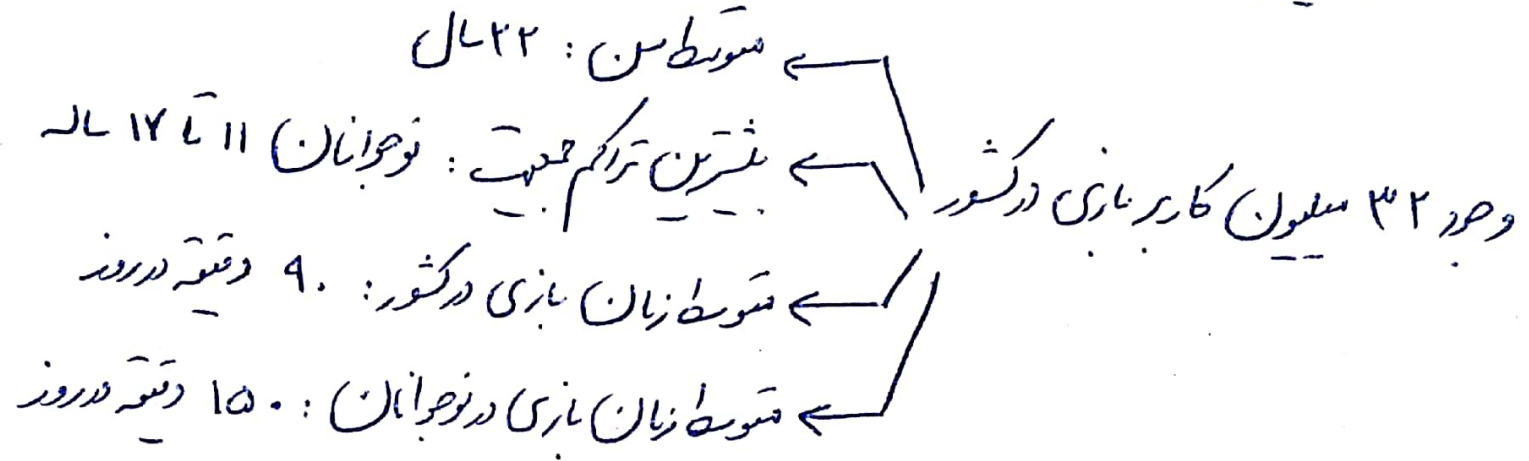 وجود ۳۲ میلیون کاربر بازی در کشور
متوسط سن : ۲۲ سال
بیشترین تراکم جمعیت : نوجوانان ۱۱ تا ۱۷ ساله
متوسط زمان بازی در کشور : ۹۰ دقیقه در روز
متوسط زمان بازی در نوجوانان : ۱۵۰ دقیقه در روز